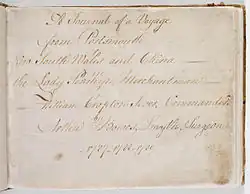 A Journal of a Voyage
from Portsmouth
South Wales and China
the Lady Penrhyn Merchantman
William Cropton Sever, Commander
Arthur Bowes Smyth, Surgeon
1787-1788-1789